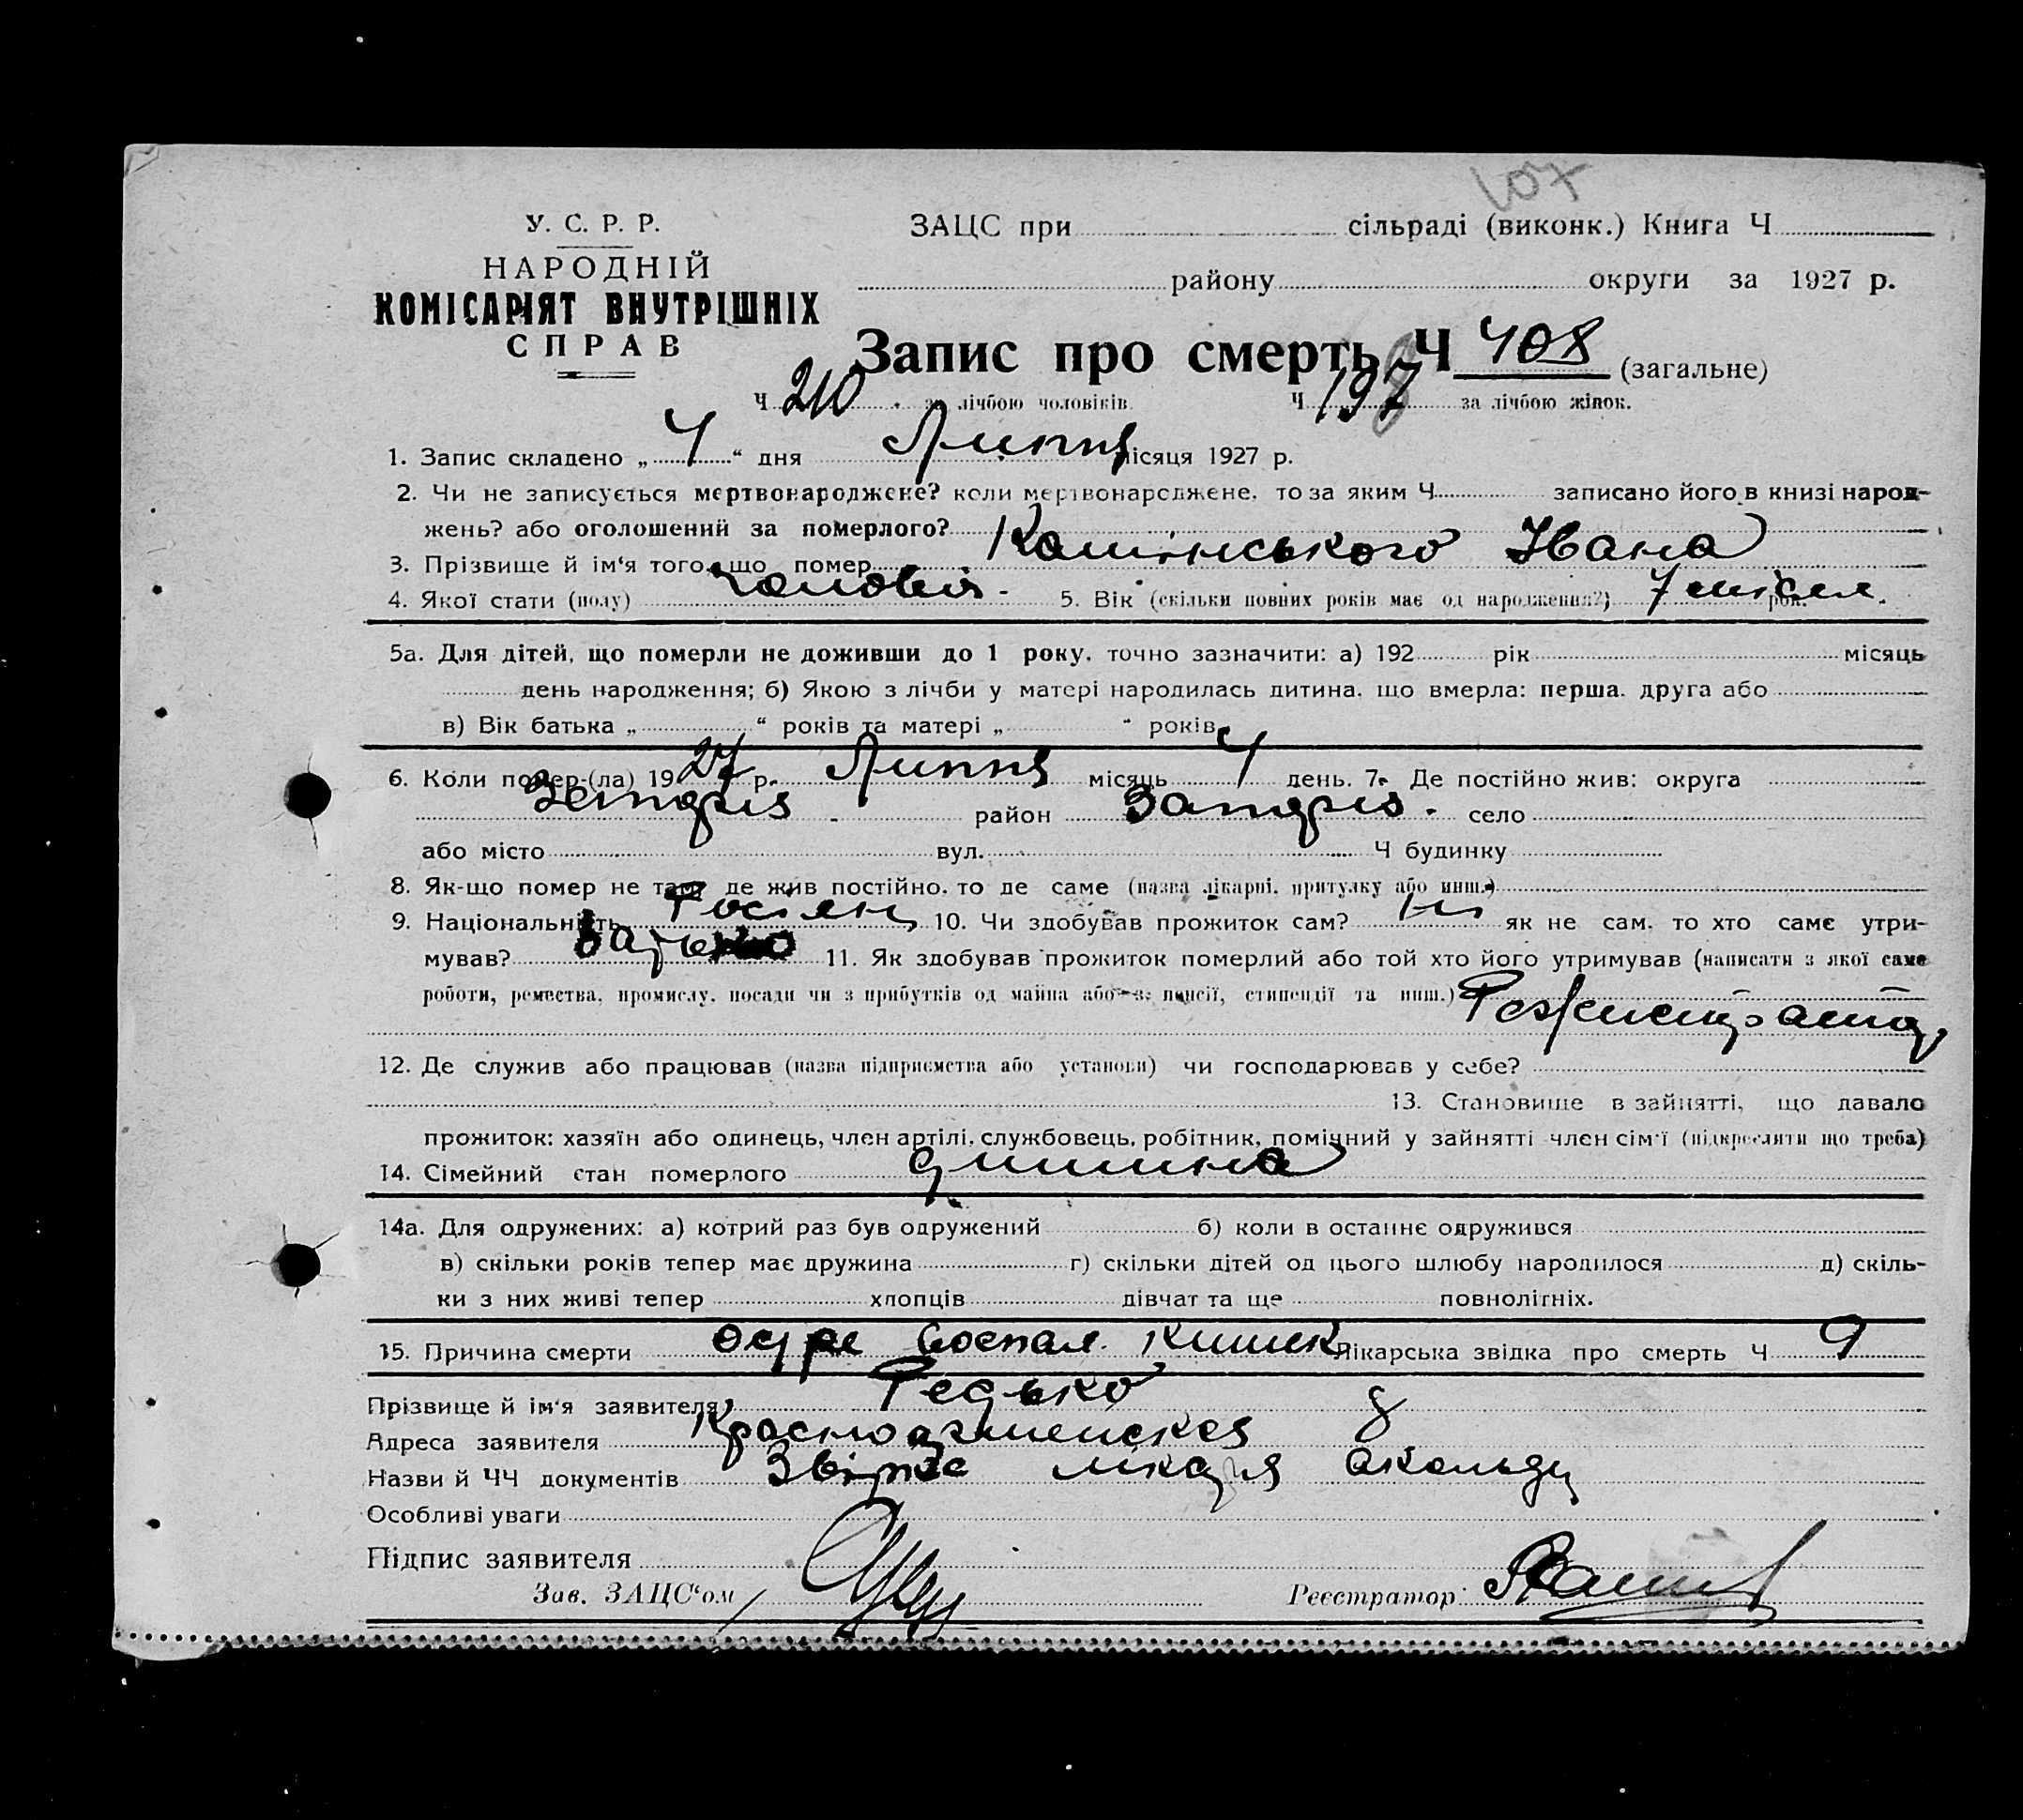 107
У. С. Р. Р.
НАРОДНІЙ
КОМІСАРІЯТ ВНУТРІШНІХ
СПРАВ
ЗАЦС при сільраді (виконк.) Книга Ч
району округи за 1927 р.
Запис про смерть Ч 408 (загальне)
Ч 210 за лічбою чоловіків. Ч 197 за лічбою жінок.
1. Запис складено „ 4 “ дня Липня місяця 1927 р.
2. Чи не записується мертвонароджене? коли мертвонароджене, то за яким Ч записано його в книзі народ-
жень? або оголошений за померлого?
3. Прізвище й ім‘я того, що помер Камінського Івана
4. Якої стати (полу) чоловіч. 5. Вік (скільки повних років має од народження?) 7 місяц. рок.
5а. Для дітей, що померли не доживши до 1 року, точно зазначити: а) 192 рік місяць
день народження; б) Якою з лічби у матері народилась дитина, що вмерла: перша, друга або
в) Вік батька „ “ років та матері „ “ років
6. Коли помер-(ла) 1927 р. Липня місяць 4 день. 7. Де постійно жив: округа
район село
або місто вул. Ч будинку
8. Як-що помер не там, де жив постійно, то де саме (назва лікарні, притулку або инш.)
9. Національність Росіян 10. Чи здобував прожиток сам? Ні як не сам, то хто саме утри-
мував? батько 11. Як здобував прожиток померлий або той хто його утримував (написати з якої саме
роботи, ремества, промислу, посади чи з прибутків од майна або з: пенсії, стипендії та инш.)
12. Де служив або працював (назва підприємства або установи) чи господарював у себе?
13. Становище в зайнятті, що давало
прожиток: хазяїн або одинець, член артілі, службовець, робітник, помічний у зайнятті член сім‘ї (підкреслити що треба)
14. Сімейний стан померлого дитина
14а. Для одружених: а) котрий раз був одружений б) коли в останнє одружився
в) скільки років тепер має дружина г) скільки дітей од цього шлюбу народилося д) скіль-
ки з них живі тепер хлопців дівчат та ще повнолітніх.
15. Причина смерти остре воспал. кишек Лікарська звідка про смерть Ч 9
Прізвище й ім‘я заявителя Редько
Адреса заявителя Красноармейская 8
Назви й ЧЧ документів Звідка лікаря
Особливі уваги
Підпис заявителя
Зав. ЗАЦС‘ом Реєстратор